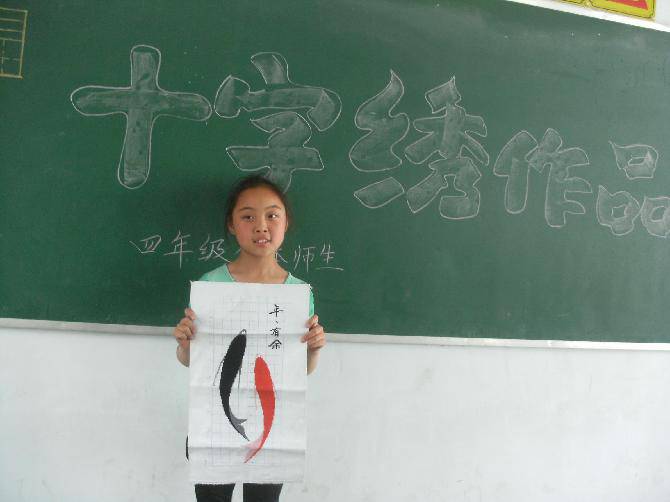 十字绣作品
四年级 师生
年、有余